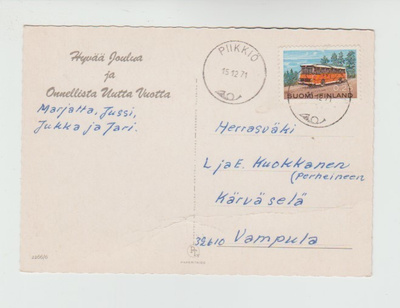 Hyvää Joulua
ja
Onnellista Uutta Vuotta
Marjatta, Jussi,
Jukka ja Jari.
PIIKKIÖ
15.12.71
SUOMI FINLAND
Herrasväki
L ja E. Kuokkanen
(Perheineen
Kärväselä
32610 Vampula